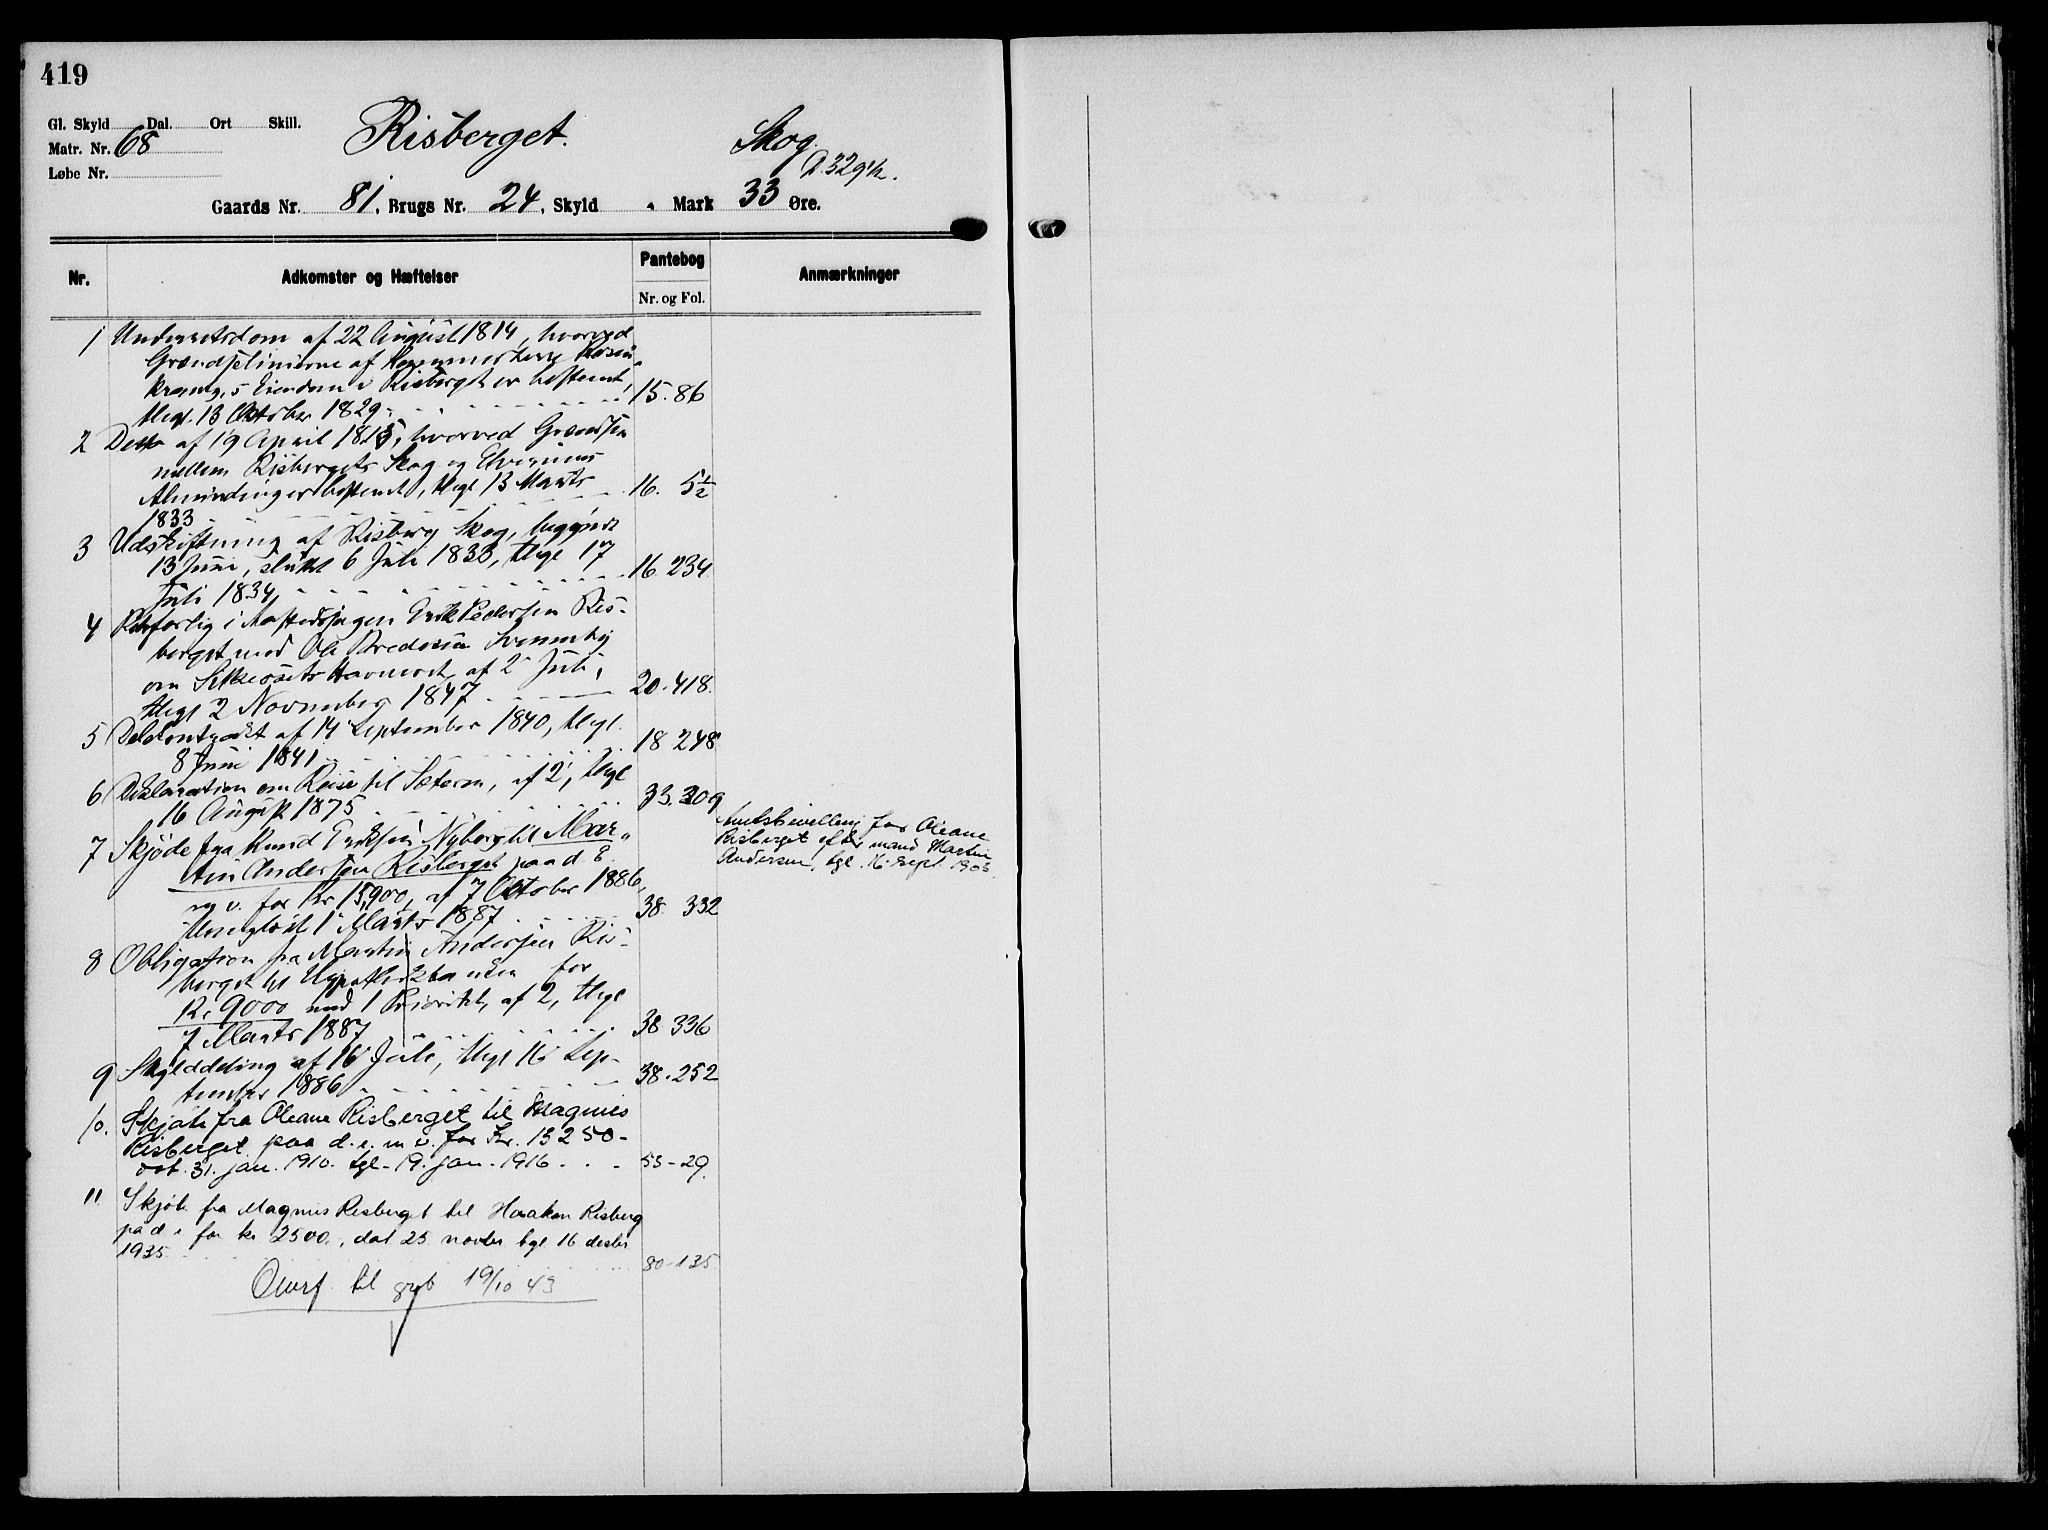 419
Gl. Skyld Dal. Ort Skill.
Matr. Nr. 68
Løbe Nr.
Risberget.
Skog.
Gaards Nr. 81, Brugs Nr. 24, Skyld Mark 33 Øre.
Nr. Adkomster og Hæftelser Pantebog Anmærkninger
Nr. og Fol.
1 Underretsdom af 22 August 1814, hvorved
Grændselinierne af Kammerherre
Eiendom i Risberget er bestemt,
thlgt. 13 Oktober 1829 15. 86
2 Ditto af 19 April 1815, hvorved Grændsen
mellem Risbergets Skog og Elverums
Almindinger bestemt, thlgt 13 Marts
1833 16. 5 1/2
3 Udskiftning af Risberg Skog, begyndt
13 Juni, sluttet 6 Juli 1833, thlgt 17
Juli 1834, 16. 234.
4 Retsforlig i Aastedssagen Erik Pedersen Ris-
berget mod Ole
om Havneret, af 2 Juli,
thlgt 2 November 1847 20. 418.
5 Delekontrakt af 14 September 1840, thlgt.
8 Juni 1841 18 248
6 Deklaration om Reise til Sæteren, af 2, thlgt
16 August 1875 33. 309
7 Skjøde fra Knud Eriksen Nyborg til Mar-
tin Andersen Risberget paa d E
m v. for Kr 15,900, af 7 Oktober 1886,
thinglæst 1 Marts 1887 38. 332
Amtsbevilling for Oleane
Risberget efter mand Martin
Andersen, tgl. 16 sept. 1903.
8 Obligation fra Martin Andersen Ris-
berget til Hypothekbanken for
Kr. 9000 med 1 Prioritet, af 2, thlgt
7 Marts 1887 38 336
9 Skylddeling af 16 Juli, thlgt 16 Sep-
tember 1886 38. 252
10. Skjøte fra Oleane Risberget til Magnus
Risberget paa d. e. m v. for Kr. 13250-
dat. 31. jan. 1910. tgl. 19. jan. 1916 . . . 53-29.
11 Skjøte fra Magnus Risberget til Haakon Risberg
på d e for kr 2500., dat 25 novbr tgl 16 desbr
1935 80-135.
Overf. til grb 19/10 43